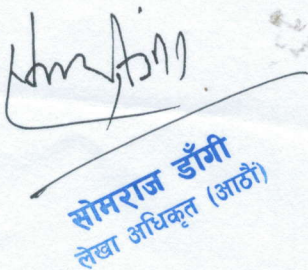 सोमराज डाँगी
लेखा अधिकृत (आठौं)